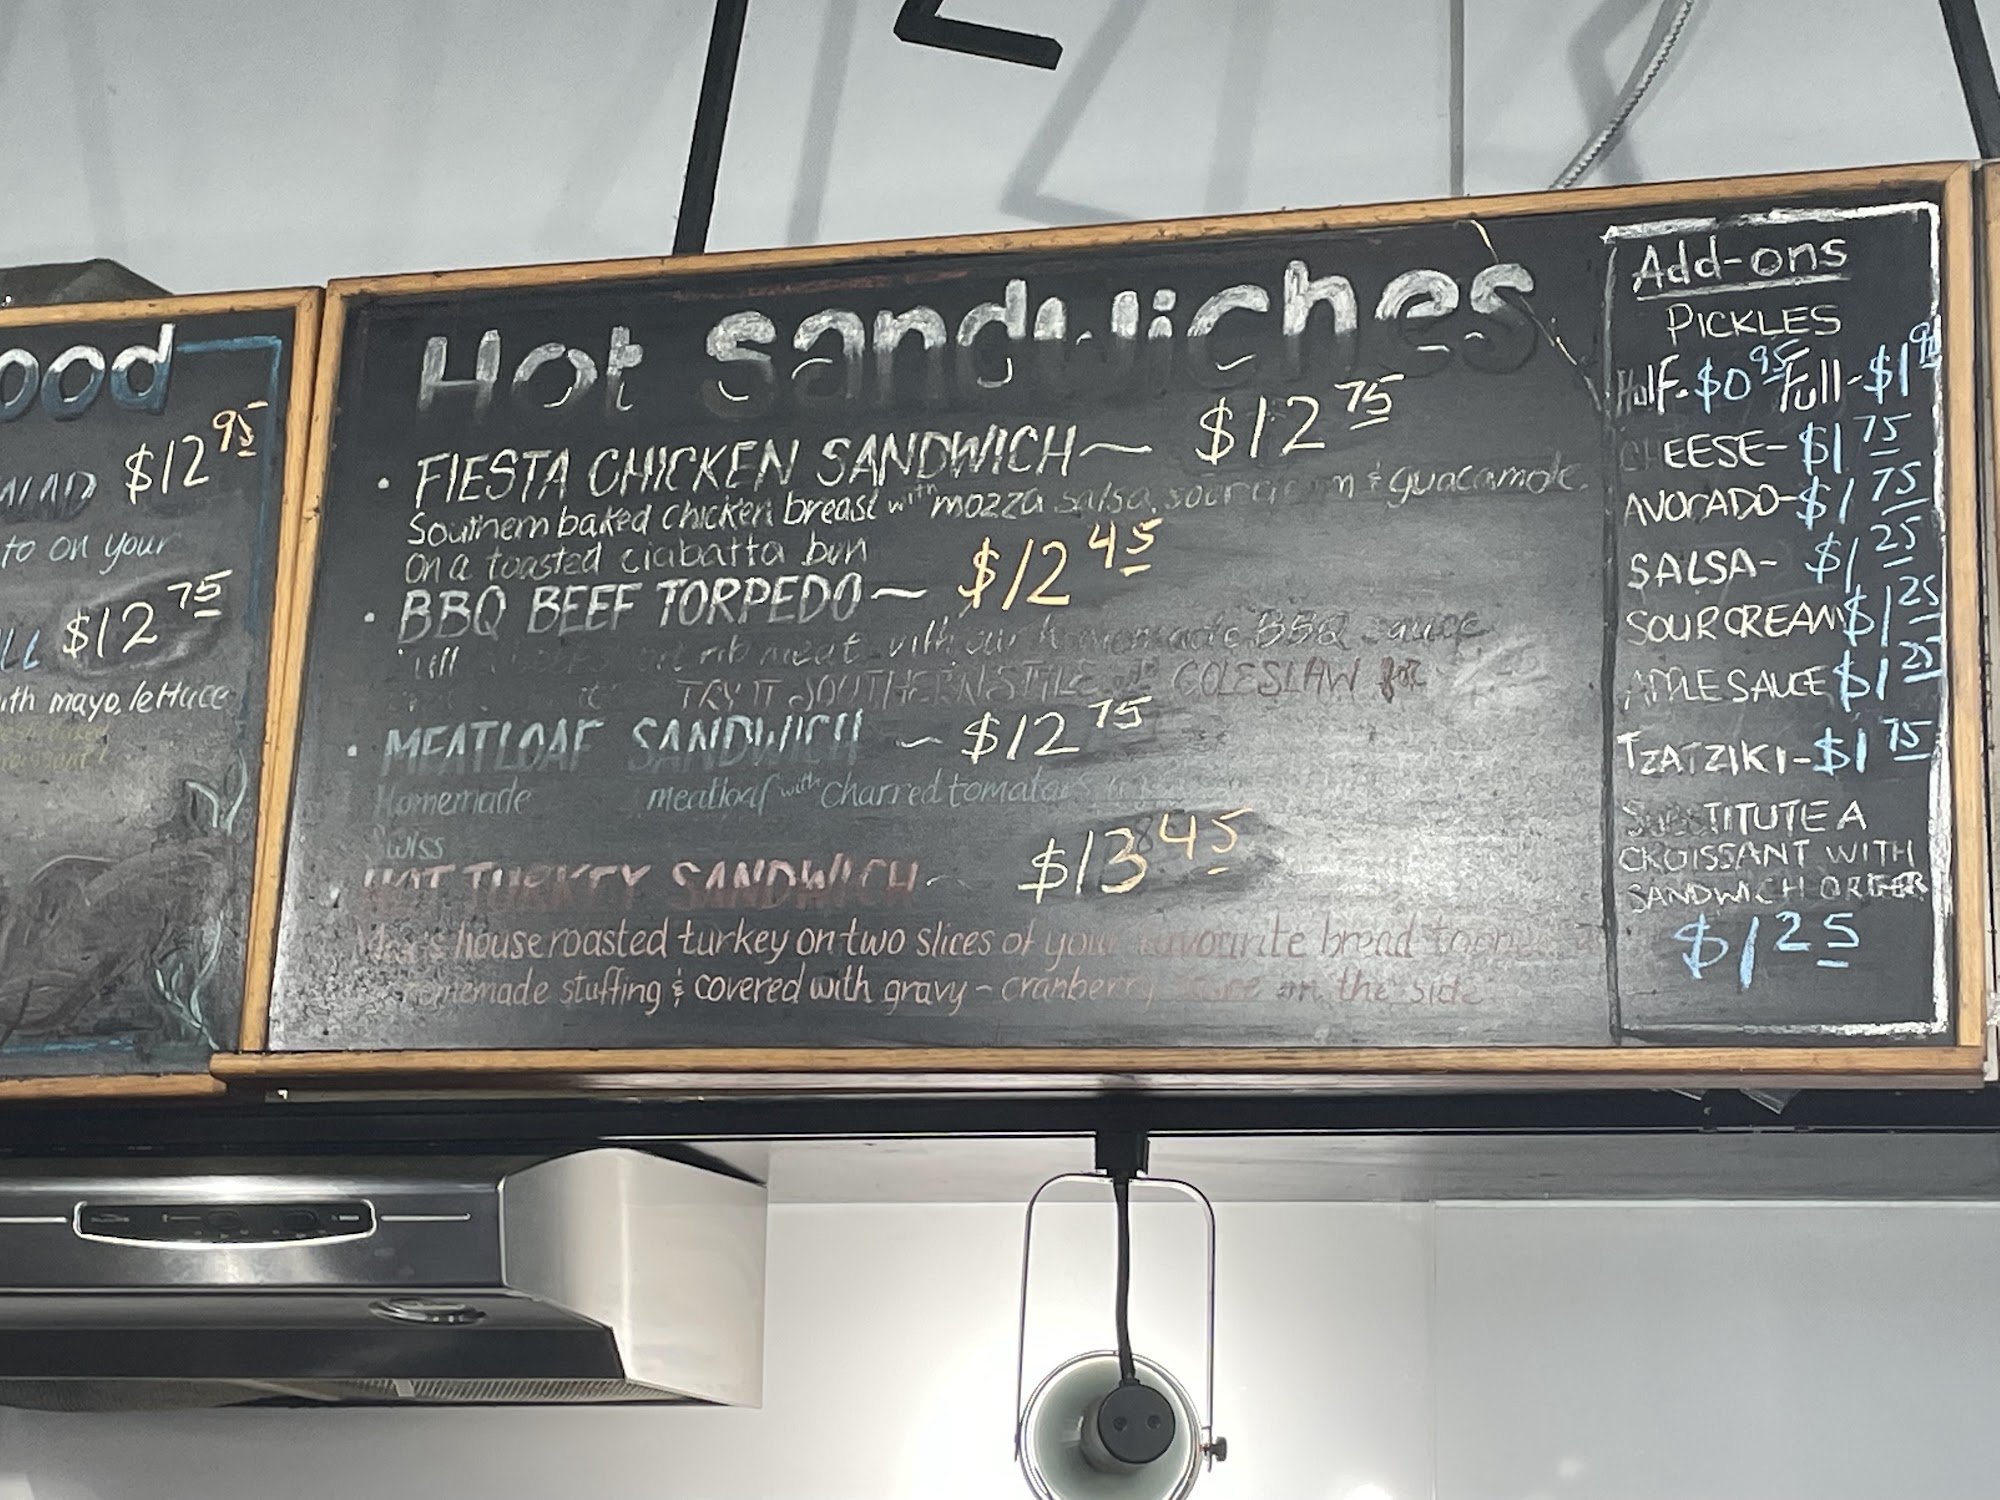 ood
$12.95
to on your
$12.75
mayo, lettuce
Hot Sandwiches
• FIESTA CHICKEN SANDWICH~ $12.75
Southern baked chicken breast with mozza salsa, & guacamole
On a toasted ciabatta bun
• BBQ BEEF TORPEDO~ $12.45
rib meat with our homemade BBQ sauce
TRY IT SOUTHERN STYLE COLESLAW for
• MEATLOAF SANDWICH ~ $12.75
Homemade meatloaf with charred tomato
Swiss
HOT TURKEY SANDWICH~ $13.45
house roasted turkey on two slices of your favourite bread
homemade stuffing & covered with gravy - cranberry on the side
Add-ons
PICKLES
Half-$0.95 Full-$1.95
CHEESE-$1.75
AVOCADO-$1.75
SALSA-$1.25
SOUR CREAM $1.25
APPLE SAUCE $1.25
TZATZIKI-$1.75
SUBSTITUTE A
CROISSANT WITH
SANDWICH ORDER
$1.25